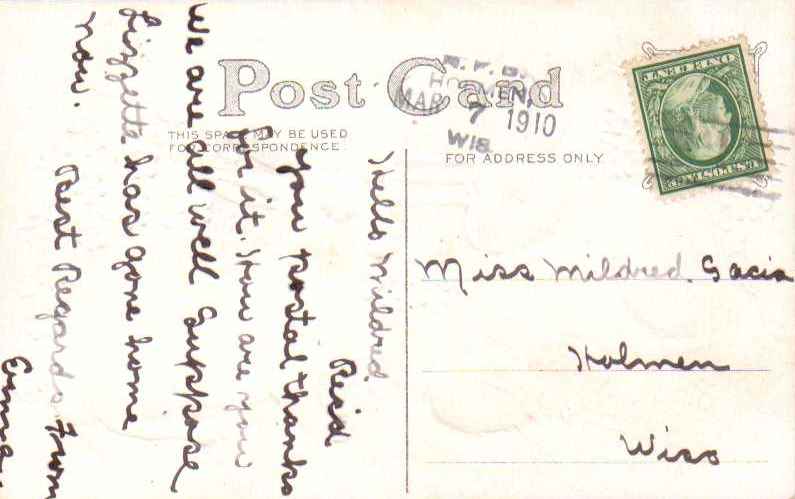 Post Card
THIS SPACE MAY BE USED
FOR CORRESPONDENCE
FOR ADDRESS ONLY
R. F. D.
HOLMEN,
MAR 7 1910
WIS.
U.S. POSTAGE
ONE CENT
Miss Mildred Gacia
Holmen
Wisc
Hello Mildred
Rec'd
your postal thanks
for it. How are you
we are all well Suppose
has gone home
now.
Best Regards From
Emma.